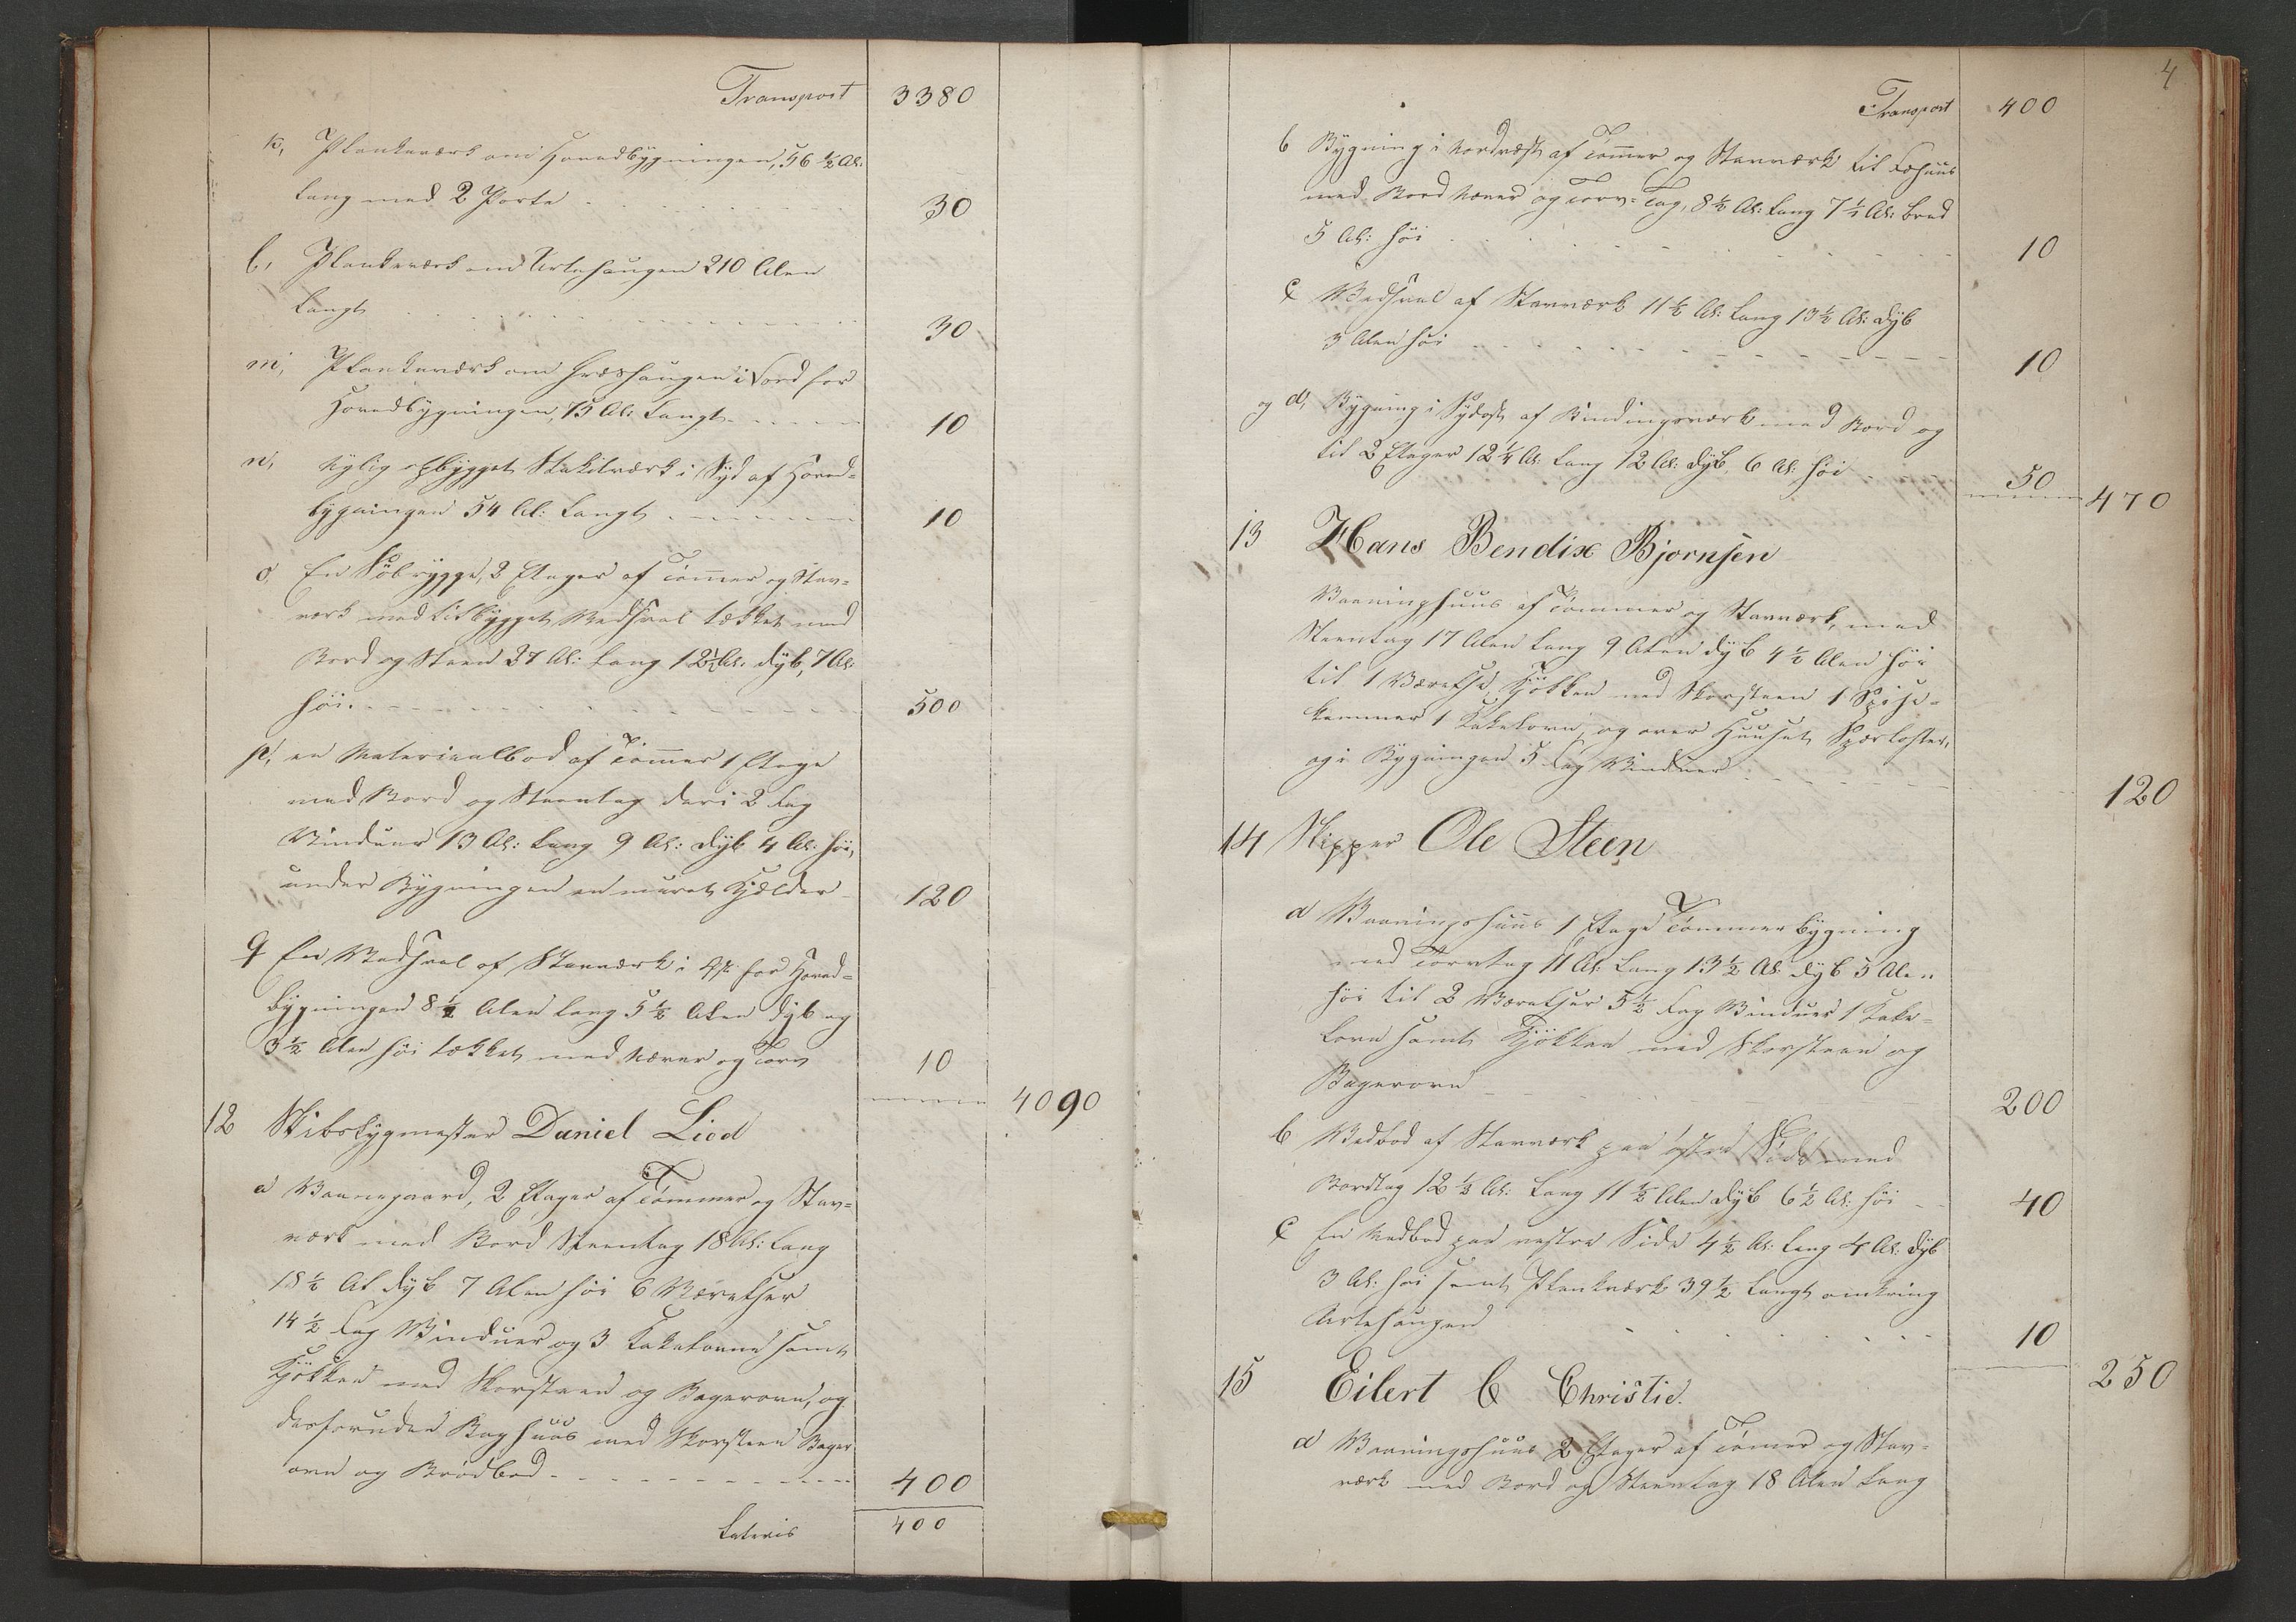 Transport 3380
k, Plankeværk om Hovedbygningen, 56 1/2 Al:
lang med 2 Porte 30
l, Plankeværk om Urtehaugen 210 Alen
langt 30
m, Plankeværk om Græshaugen i Nord for
Hovedbygningen, 75 Al: langt 10
n, nylig opbygget Stakitværk i Syd af Hoved=
bygningen 54 Al: langt 10
o. En Søbrygge, 2 Etager af Tømer og Stav=
værk med tilbygget Vedsval tækket med
Bord og Steen 27 Al: lang 12 1/2 Al: dyb, 7 Al:
høi. 500
p, en Materiaalbod af Tømer 1 Etage
med Bord og Steentag deri 2 Fag
Vinduer 13 Al: lang 9 Al: dyb 4 Al: høi,
under Bygningen en muret Kjelder 120
q En Vedsval af Stavværk i Øst for Hoved=
bygningen 8 1/2 Alen lang 5 1/2 Alen dyb og
3 1/2 Alen høi tækket med Næver og Torv 10
4090
12 Skibsbygmester Daniel Lied
a Vaanegaard, 2 Etager af Tømmer og Stav=
værk med Bord Steentag 18 Al: lang
18 1/2 Al dyb 7 Alen høi 6 Værelser
14 1/2 Fag Vinduer og 3 Kakelovne samt
Kjøkken med Skorsteen og Bagerovn, og
desforuden Baghuus med Skorsteen Bager
ovn og Brødbod 400
Lateris 400
4
Transport 400
b Bygning i Nordvest af Tømer og Stavværk til Fæhuus
med Bord Næver og Torv=Tag, 8 1/2 Al: lang 7 1/2 Al: bred
5 Al: høi 10
c Vedsval af Stavværk 11 1/2 Al: lang 13 1/2 Al: dyb
3 Alen høi 10
og d, Bygning i Sydost af Bindingsværk med Bord og
til 2 Etager 12 1/4 Al: lang 12 Al: dyb, 6 Al: høi 50
470
13 Hans Bendix Bjornsen
Vaaningshuus af Tømmer og Stavværk, med
Steentag 17 Alen lang 9 Alen dyb 4 1/2 Alen høi
til 1 Værelse, Kjøkken med Skorsteen 1 Spise=
kammer 1 Kakelovn, og over Huuset Spærlofter,
og i Bygningen 5 Fag Vinduer 120
14 Skipper Ole Steen
a Vaaningshuus 1 Etage Tømmerbygning
med Torvtag 11 Al: lang 13 1/2 Al: dyb 5 Alen
høi til 2 Værelser 5 1/2 Fag Vinduer 1 Kake=
lovn samt Kjøkken med Skorsteen og
Bagerovn 200
b Vedbod af Stavværk paa østre Side med
Bordtag 12 1/2 Al: lang 11 1/2 Alen dyb 6 1/2 Al: høi 40
c En Vedbod paa vestre Side 4 1/2 Al: lang 4 Al: dyb
3 Al: høi samt Plankværk 39 1/2 langt omkring
Urtehaugen 10
250
15 Eilert C Christie.
a Vaaningshuus 2 Etager af Tømer og Stav=
værk med Bord og Steentag 18 Alen lang